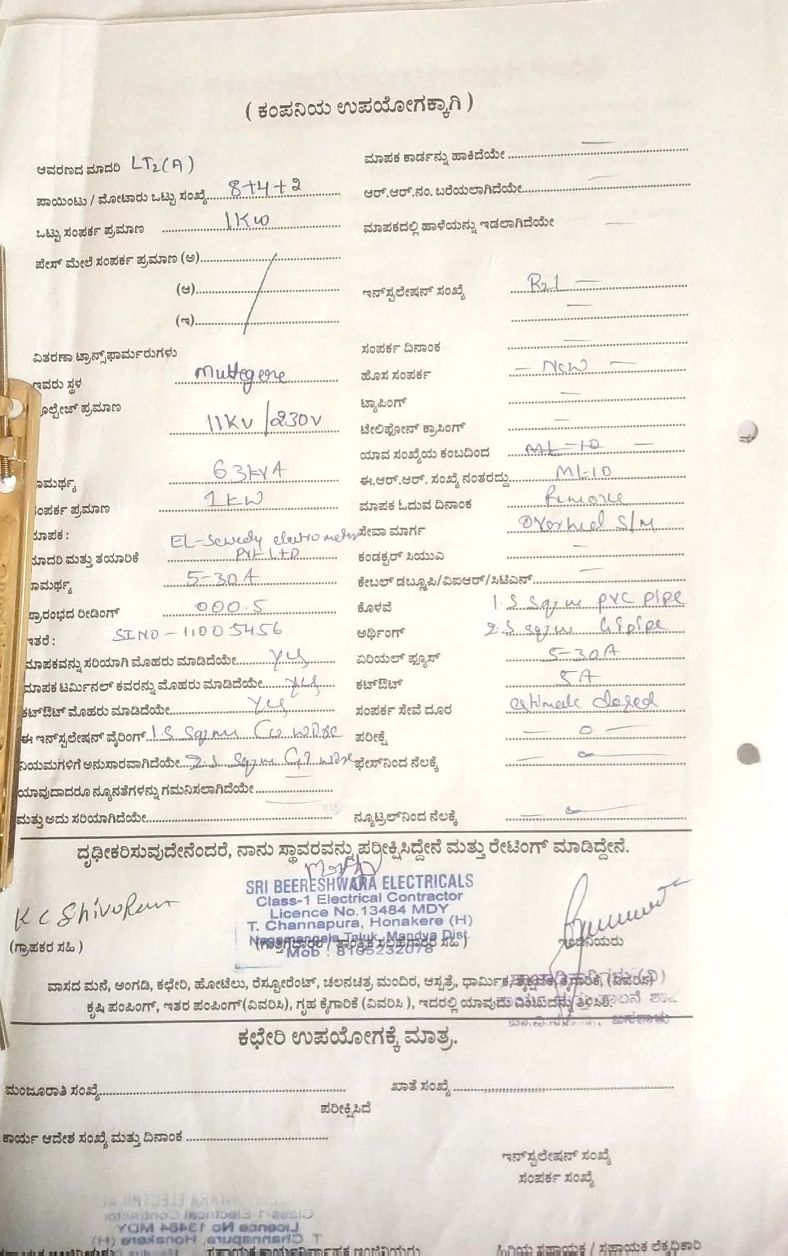 ( ಕಂಪನಿಯ ಉಪಯೋಗಕ್ಕಾಗಿ )
ಆವರಣದ ಮಾದರಿ LT2(A)
ಮಾಪಕ ಕಾರ್ಡನ್ನು ಹಾಕಿದೆಯೇ
ಪಾಯಿಂಟು / ಮೋಟಾರು ಒಟ್ಟು ಸಂಖ್ಯೆ 8+4+2
ಆರ್.ಆರ್.ನಂ. ಬರೆಯಲಾಗಿದೆಯೇ
ಒಟ್ಟು ಸಂಪರ್ಕ ಪ್ರಮಾಣ 1KW
ಮಾಪಕದಲ್ಲಿ ಹಾಳೆಯನ್ನು ಇಡಲಾಗಿದೆಯೇ
ಪೇಸ್ ಮೇಲೆ ಸಂಪರ್ಕ ಪ್ರಮಾಣ (ಅ)
(ಆ)
ಇನ್‌ಸ್ಟಲೇಷನ್ ಸಂಖ್ಯೆ
(ಇ)
ವಿತರಣಾ ಟ್ರಾನ್ಸ್‌ಫಾರ್ಮರುಗಳು
ಸಂಪರ್ಕ ದಿನಾಂಕ
ಇವರು ಸ್ಥಳ Muttegere
ಹೊಸ ಸಂಪರ್ಕ — New —
ಓಲ್ಟೇಜ್ ಪ್ರಮಾಣ 11KV / 230V
ಟ್ಯಾಪಿಂಗ್
ಟೆಲಿಫೋನ್ ಕ್ರಾಸಿಂಗ್
ಯಾವ ಸಂಖ್ಯೆಯ ಕಂಬದಿಂದ ML-10 —
ಾಮರ್ಥ್ಯ 63KVA
ಈ.ಆರ್.ಆರ್. ಸಂಖ್ಯೆ ನಂತರದ್ದು ML-10
ಂಪರ್ಕ ಪ್ರಮಾಣ 1KW
ಮಾಪಕ ಓದುವ ದಿನಾಂಕ
ಾಪಕ : EL-Sewedy electrometer
ಸೇವಾ ಮಾರ್ಗ Overhed S/M
ಾದರಿ ಮತ್ತು ತಯಾರಿಕೆ PVT LTD
ಕಂಡಕ್ಟರ್ ಸಿಯುಎ
ಾಮರ್ಥ್ಯ 5-30A
ಕೇಬಲ್ ಡಬ್ಲೂಪಿ/ವಿಐಆರ್/ಸಿಟಿಎಸ್
ಪ್ರಾರಂಭದ ರೀಡಿಂಗ್ 000.5
ಕೊಳವೆ 1.5 Sqmm PVC Pipe
ಇತರೆ : SINO-11005456
ಆರ್ಥಿಂಗ್ 2.5 Sqmm GI pipe
ಮಾಪಕವನ್ನು ಸರಿಯಾಗಿ ಮೊಹರು ಮಾಡಿದೆಯೇ Yes
ಏರಿಯಲ್ ಫ್ಯೂಸ್ 5-30A
ಮಾಪಕ ಟರ್ಮಿನಲ್ ಕವರನ್ನು ಮೊಹರು ಮಾಡಿದೆಯೇ Yes
ಕಟ್‌ಔಟ್ 5A
ಕಟ್‌ಔಟ್ ಮೊಹರು ಮಾಡಿದೆಯೇ Yes
ಸಂಪರ್ಕ ಸೇವೆ ದೂರ estimate closed
ಈ ಇನ್‌ಸ್ಟಲೇಷನ್ ವೈರಿಂಗ್ 1.5 Sqmm Cu wire
ಪರೀಕ್ಷೆ — 0 —
ನಿಯಮಗಳಿಗೆ ಅನುಸಾರವಾಗಿದೆಯೇ 2.5 Sqmm GI wire
ಫೇಸ್‌ನಿಂದ ನೆಲಕ್ಕೆ
ಯಾವುದಾದರೂ ನ್ಯೂನತೆಗಳನ್ನು ಗಮನಿಸಲಾಗಿದೆಯೇ
ಮತ್ತು ಅದು ಸರಿಯಾಗಿದೆಯೇ
ನ್ಯೂಟ್ರಲ್‌ನಿಂದ ನೆಲಕ್ಕೆ
ದೃಢೀಕರಿಸುವುದೇನೆಂದರೆ, ನಾನು ಸ್ಥಾವರವನ್ನು ಪರೀಕ್ಷಿಸಿದ್ದೇನೆ ಮತ್ತು ರೇಟಿಂಗ್ ಮಾಡಿದ್ದೇನೆ.
SRI BEERESHWARA ELECTRICALS
Class-1 Electrical Contractor
Licence No.13484 MDY
T. Channapura, Honakere (H)
Nagamangala Taluk, Mandya Dist.
Mob : 8105232078
K C Shivaram
(ಗ್ರಾಹಕರ ಸಹಿ )
(ಗುತ್ತಿಗೆದಾರರ / ತಾಂತ್ರಿಕ ಸಲಹೆಗಾರರ ಸಹಿ )
ಇಂಜಿನಿಯರು
ವಾಸದ ಮನೆ, ಅಂಗಡಿ, ಕಛೇರಿ, ಹೋಟೆಲು, ರೆಸ್ಟೋರೆಂಟ್, ಚಲನಚಿತ್ರ ಮಂದಿರ, ಆಸ್ಪತ್ರೆ, ಧಾರ್ಮಿಕ, ಶೈಕ್ಷಣಿಕ, ಕೈಗಾರಿಕೆ, (ವಿವರಿಸಿ)
ಕೃಷಿ ಪಂಪಿಂಗ್, ಇತರ ಪಂಪಿಂಗ್ (ವಿವರಿಸಿ), ಗೃಹ ಕೈಗಾರಿಕೆ (ವಿವರಿಸಿ ), ಇದರಲ್ಲಿ ಯಾವುದು
ಕಛೇರಿ ಉಪಯೋಗಕ್ಕೆ ಮಾತ್ರ.
ಮಂಜೂರಾತಿ ಸಂಖ್ಯೆ
ಖಾತೆ ಸಂಖ್ಯೆ
ಪರೀಕ್ಷಿಸಿದೆ
ಕಾರ್ಯ ಆದೇಶ ಸಂಖ್ಯೆ ಮತ್ತು ದಿನಾಂಕ
ಇನ್‌ಸ್ಟಲೇಷನ್ ಸಂಖ್ಯೆ
ಸಂಪರ್ಕ ಸಂಖ್ಯೆ
Class-1 Electrical Contractor
Licence No 13484 MDY
T Channapura, Honakere (H)
ಸಹಾಯಕ ಕಾರ್ಯನಿರ್ವಾಹಕ ಇಂಜಿನಿಯರು
ಹಿರಿಯ ಸಹಾಯಕ / ಸಹಾಯಕ ಲೆಕ್ಕಾಧಿಕಾರಿ